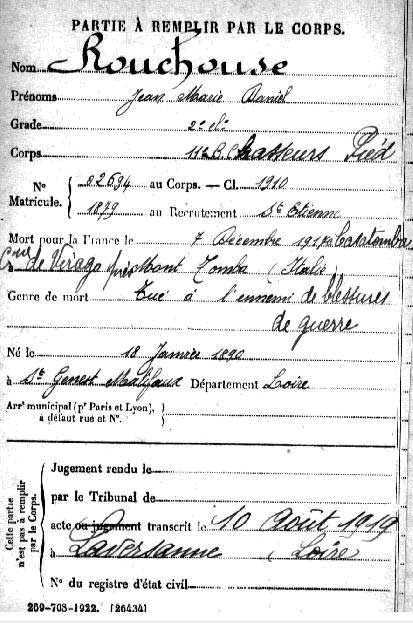 PARTIE À REMPLIR PAR LE CORPS.
Nom Rouchouse
Prénoms Jean Marie Daniel
Grade 2e cl.
Corps 112e B. Chasseurs Pied
No Matricule. { 82694 au Corps. — Cl. 1910
1879 au Recrutement St Etienne
Mort pour la France le 7 Décembre 1917
à de Virago près Mont Tomba (Italie)
Genre de mort Tué à l'ennemi de blessures
de guerre
Né le 18 Janvier 1890
à St Genest Malifaux Département Loire
Arrt municipal (pr Paris et Lyon), à défaut rue et No. }
Cette partie n'est pas à remplir par le Corps.
Jugement rendu le
par le Tribunal de
acte ou jugement transcrit le 10 Août 1919
à Laversanne (Loire)
No du registre d'état civil
269-708-1922. [26434]